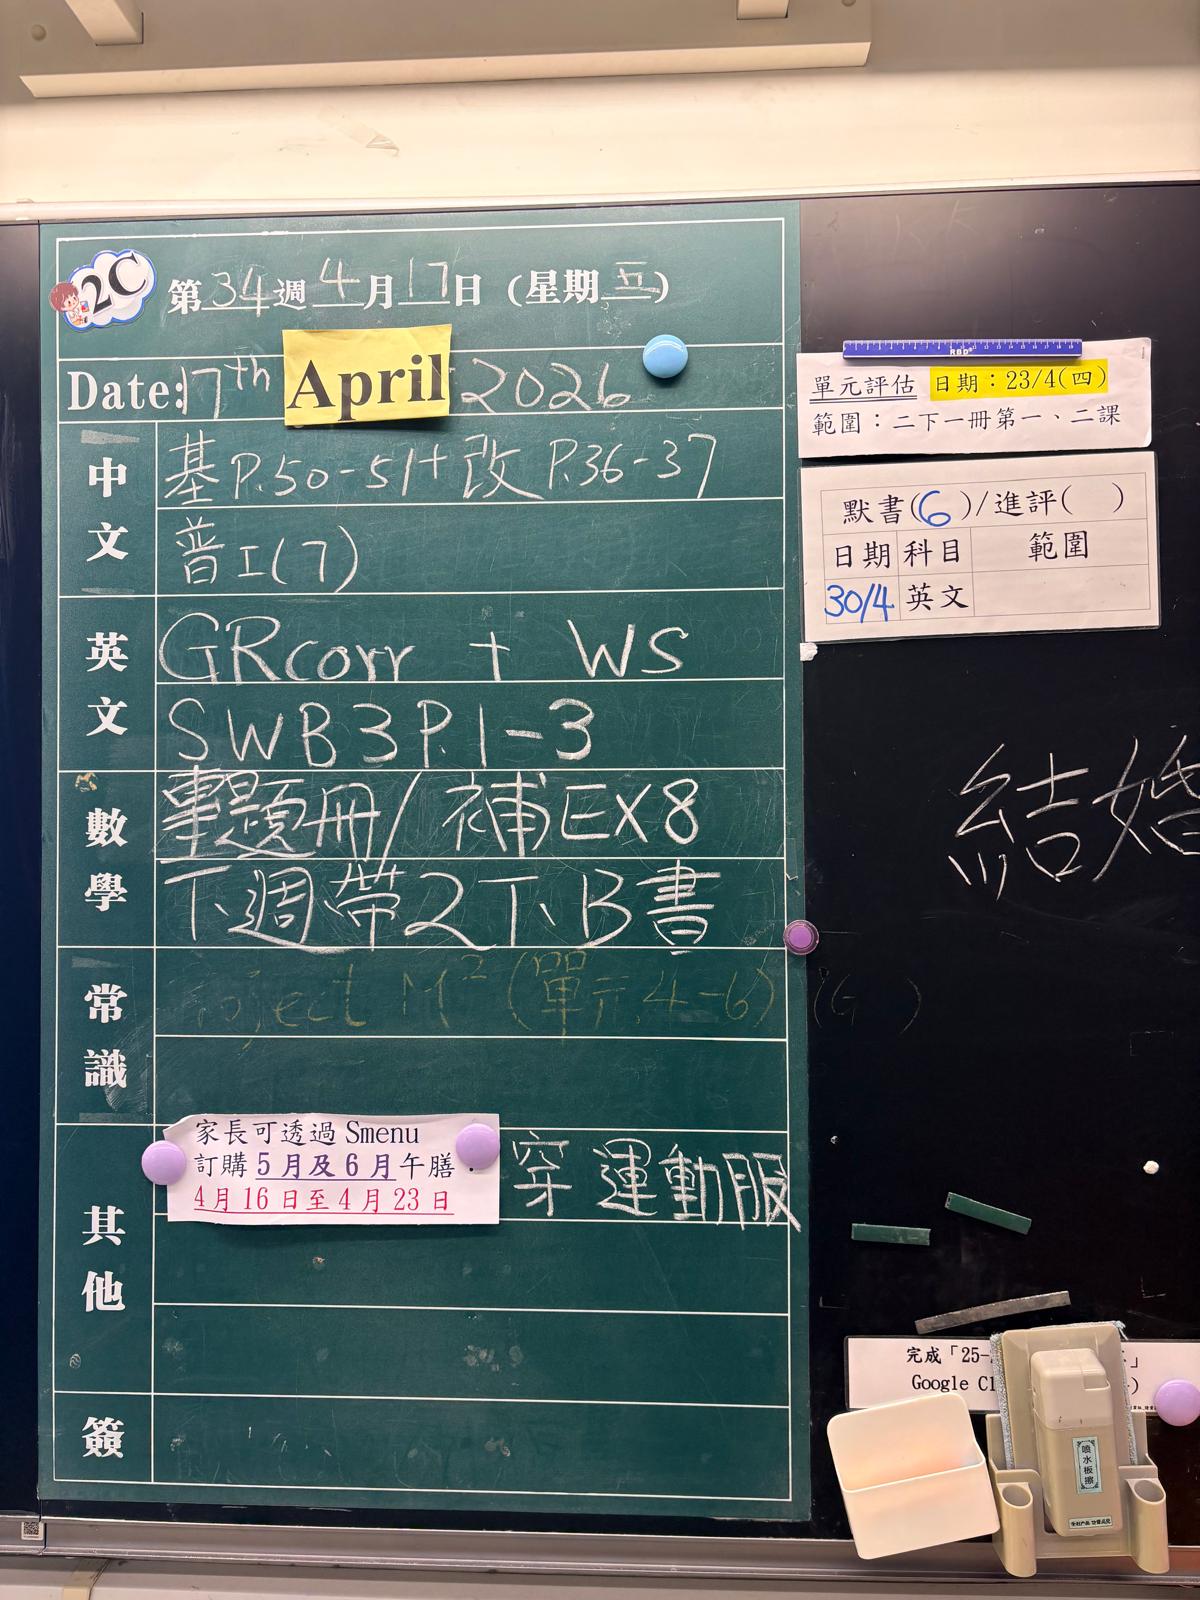 2C
第34週4月17日(星期五)
Date:17th April 2026
中文
基P.50-51+改P.36-37
普I(7)
英文
GRcorr + WS
SWB3P.1-3
數學
專題冊/補EX8
下週帶2下B書
常識
oject M²(單元4-6)(G )
其他
家長可透過 Smenu
訂購5月及6月午膳:
4月16日至4月23日
穿運動服
簽
RBD
單元評估 日期:23/4(四)
範圍:二下一冊第一、二課
默書(6)/進評( )
日期 科目 範圍
30/4 英文
結婚
完成「25-
」
Google Cl
)
噴水板擦